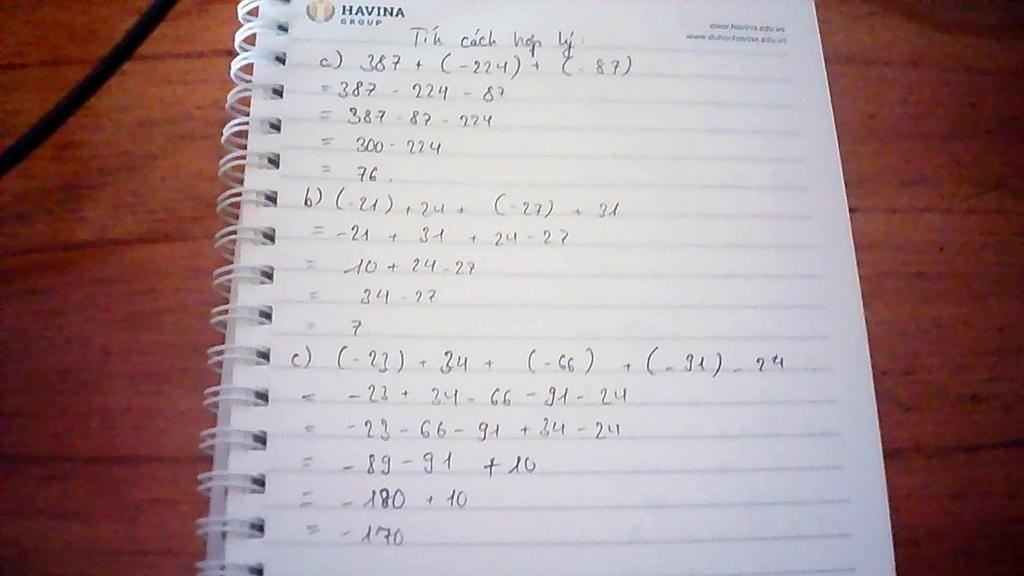 HAVINA
GROUP
www.havina.edu.vn
www.duhochavina.edu.vn
Tính cách hợp lý:
a) 387 + (-224) + (-87)
= 387 - 224 - 87
= 387 - 87 - 224
= 300 - 224
= 76.
b) (-21) + 24 + (-27) + 31
= -21 + 31 + 24 - 27
= 10 + 24 - 27
= 34 - 27
= 7
c) (-23) + 34 + (-66) + (-91) - 24
= -23 + 34 - 66 - 91 - 24
= -23 - 66 - 91 + 34 - 24
= -89 - 91 + 10
= -180 + 10
= -170